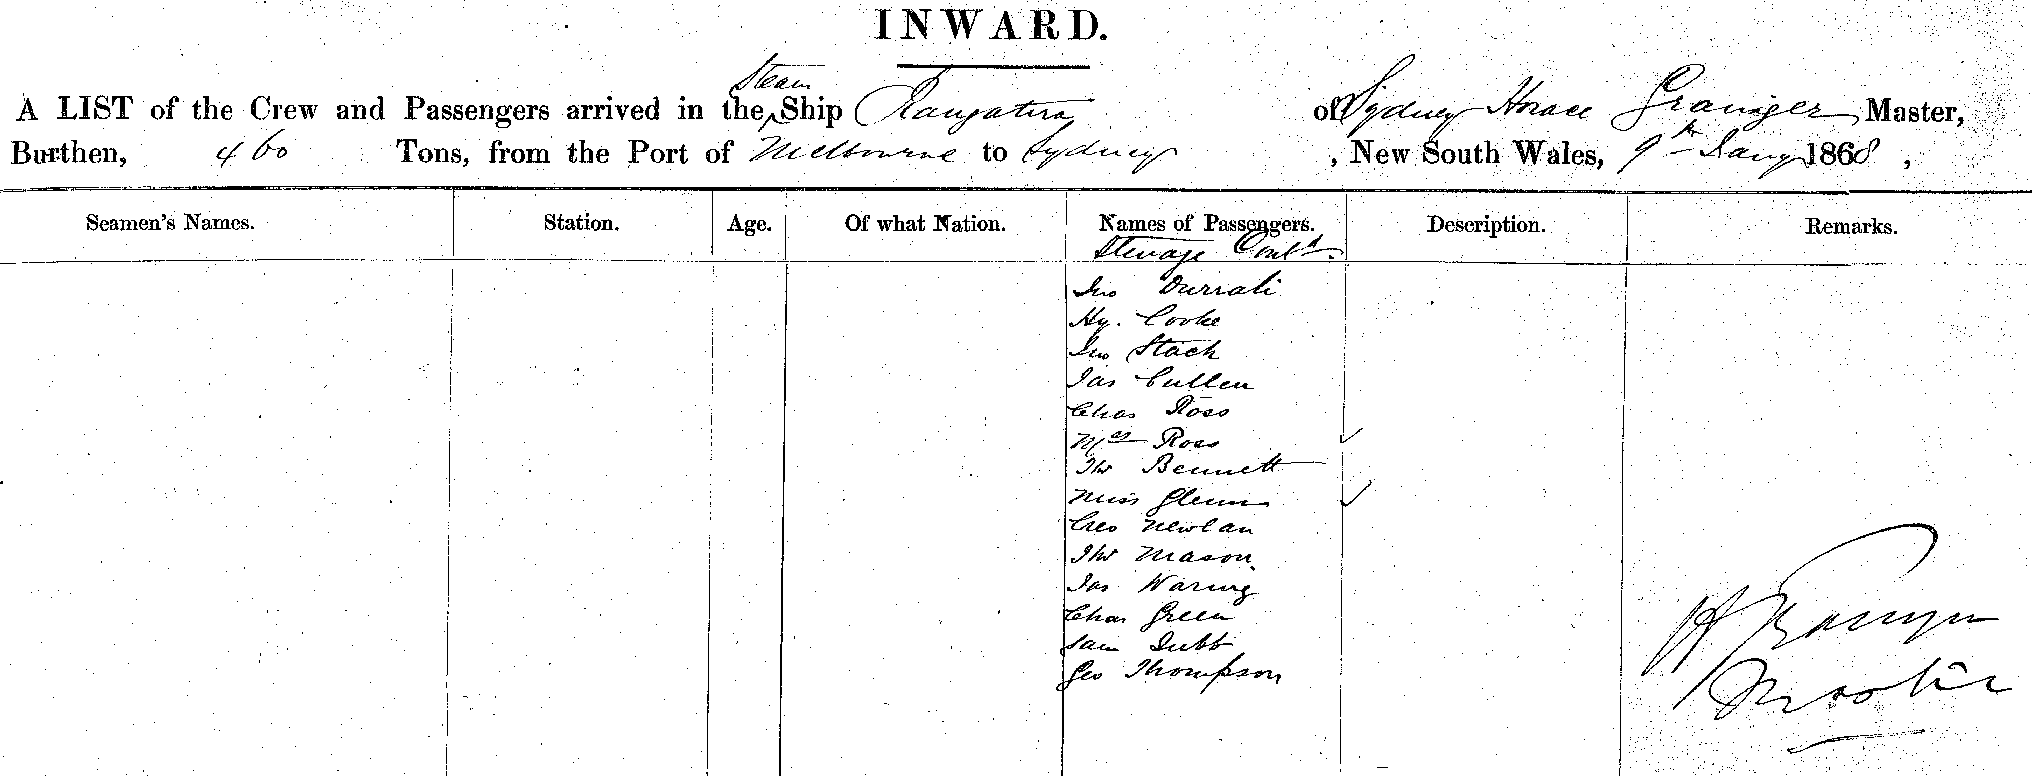 INWARD.
Steam
A LIST of the Crew and Passengers arrived in the Ship Rangatira of Sydney Horace Grainger Master,
Burthen, 460 Tons, from the Port of Melbourne to Sydney, New South Wales, 9th Jany 1868,
Seamen's Names. Station. Age. Of what Nation. Names of Passengers. Description. Remarks.
Steerage Contd.
Jno
Hy. Cooke
Jno Stack
Jas Cullen
Chas Ross
Mrs Ross
Thos Bennett
Miss Glenn
Geo Newlan
Thos Mason
Jas Waring
Chas Green
Sam Tubb
Geo Thompson
H Grainger
Master